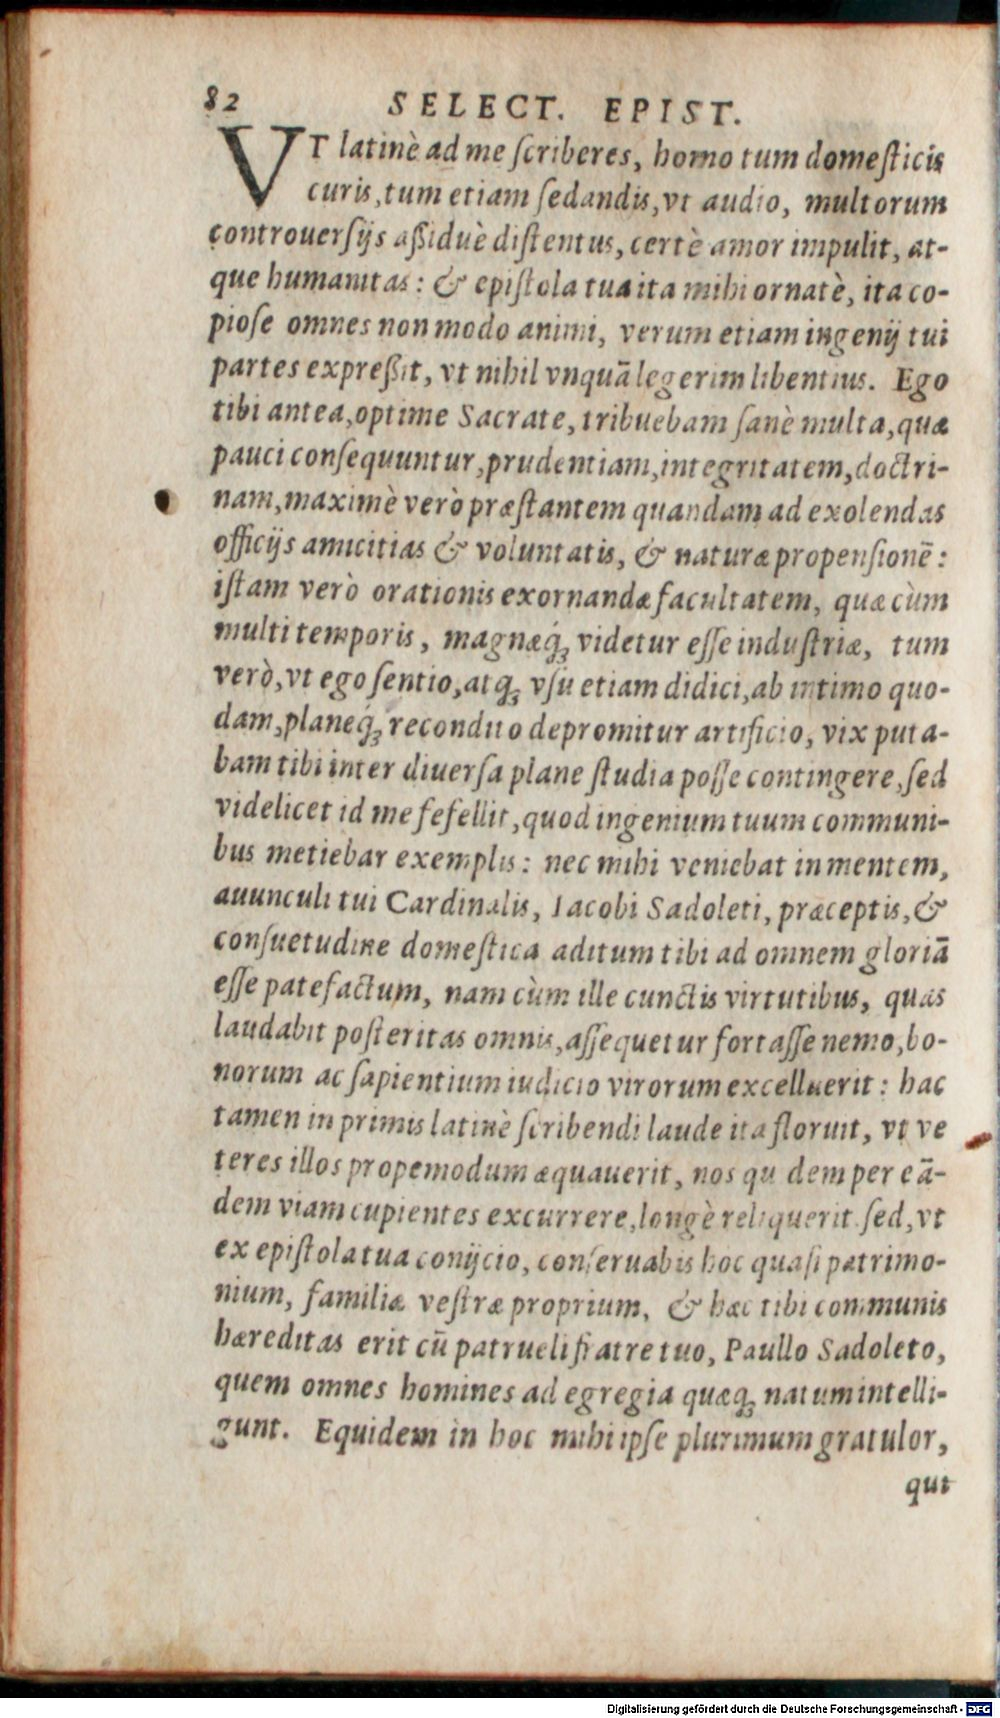 82 SELECT. EPIST.
VT latinè ad me ſcriberes, homo tum domeſticis
curis, tum etiam ſedandis, vt audio, multorum
controuerſijs aßiduè diſtentus, certè amor impulit, at-
que humanitas: & epiſtola tua ita mihi ornatè, ita co-
pioſe omnes non modo animi, verum etiam ingenij tui
partes expreßit, vt nihil vnquā legerim libentius. Ego
tibi antea, optime Sacrate, tribuebam ſanè multa, quæ
pauci conſequuntur, prudentiam, integritatem, doctri-
nam, maximè verò præſtantem quandam ad exolendas
officijs amicitias & voluntatis, & naturæ propenſionē:
iſtam verò orationis exornandæ facultatem, quæ cùm
multi temporis, magnæq́ꝫ videtur eſſe induſtriæ, tum
verò, vt ego ſentio, atqꝫ vſu etiam didici, ab intimo quo-
dam, planeq́ꝫ recondito depromitur artificio, vix puta-
bam tibi inter diuerſa plane ſtudia poſſe contingere, ſed
videlicet id me fefellit, quod ingenium tuum communi-
bus metiebar exemplis: nec mihi veniebat in mentem,
auunculi tui Cardinalis, Iacobi Sadoleti, præceptis, &
conſuetudine domeſtica aditum tibi ad omnem gloriā
eſſe patefactum, nam cùm ille cunctis virtutibus, quas
laudabit poſteritas omnis, aſſequetur fortaſſe nemo, bo-
norum ac ſapientium iudicio virorum excelluerit: hac
tamen in primis latinè ſcribendi laude ita floruit, vt ve
teres illos propemodum æquauerit, nos qu dem per eā-
dem viam cupientes excurrere, longè reliquerit. ſed, vt
ex epiſtola tua conijcio, conſeruabis hoc quaſi patrimo-
nium, familiæ veſtræ proprium, & hæc tibi communis
hæreditas erit cū patrueli fratre tuo, Paullo Sadoleto,
quem omnes homines ad egregia quæqꝫ natum intelli-
gunt. Equidem in hoc mihi ipſe plurimum gratulor,
qui
Digitalisierung gefördert durch die Deutsche Forschungsgemeinschaft - DFG